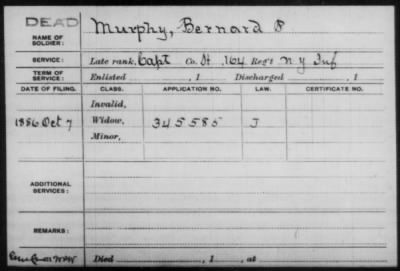 DEAD
NAME OF SOLDIER: Murphy, Bernard P
SERVICE: Late rank, Capt Co. H, 164 Reg't N Y Inf
TERM OF SERVICE: Enlisted , 1 Discharged , 1
DATE OF FILING. CLASS. APPLICATION NO. LAW. CERTIFICATE NO.
Invalid,
1886 Oct 7 Widow, 345585 J
Minor,
ADDITIONAL SERVICES:
REMARKS:
Died , 1 , at